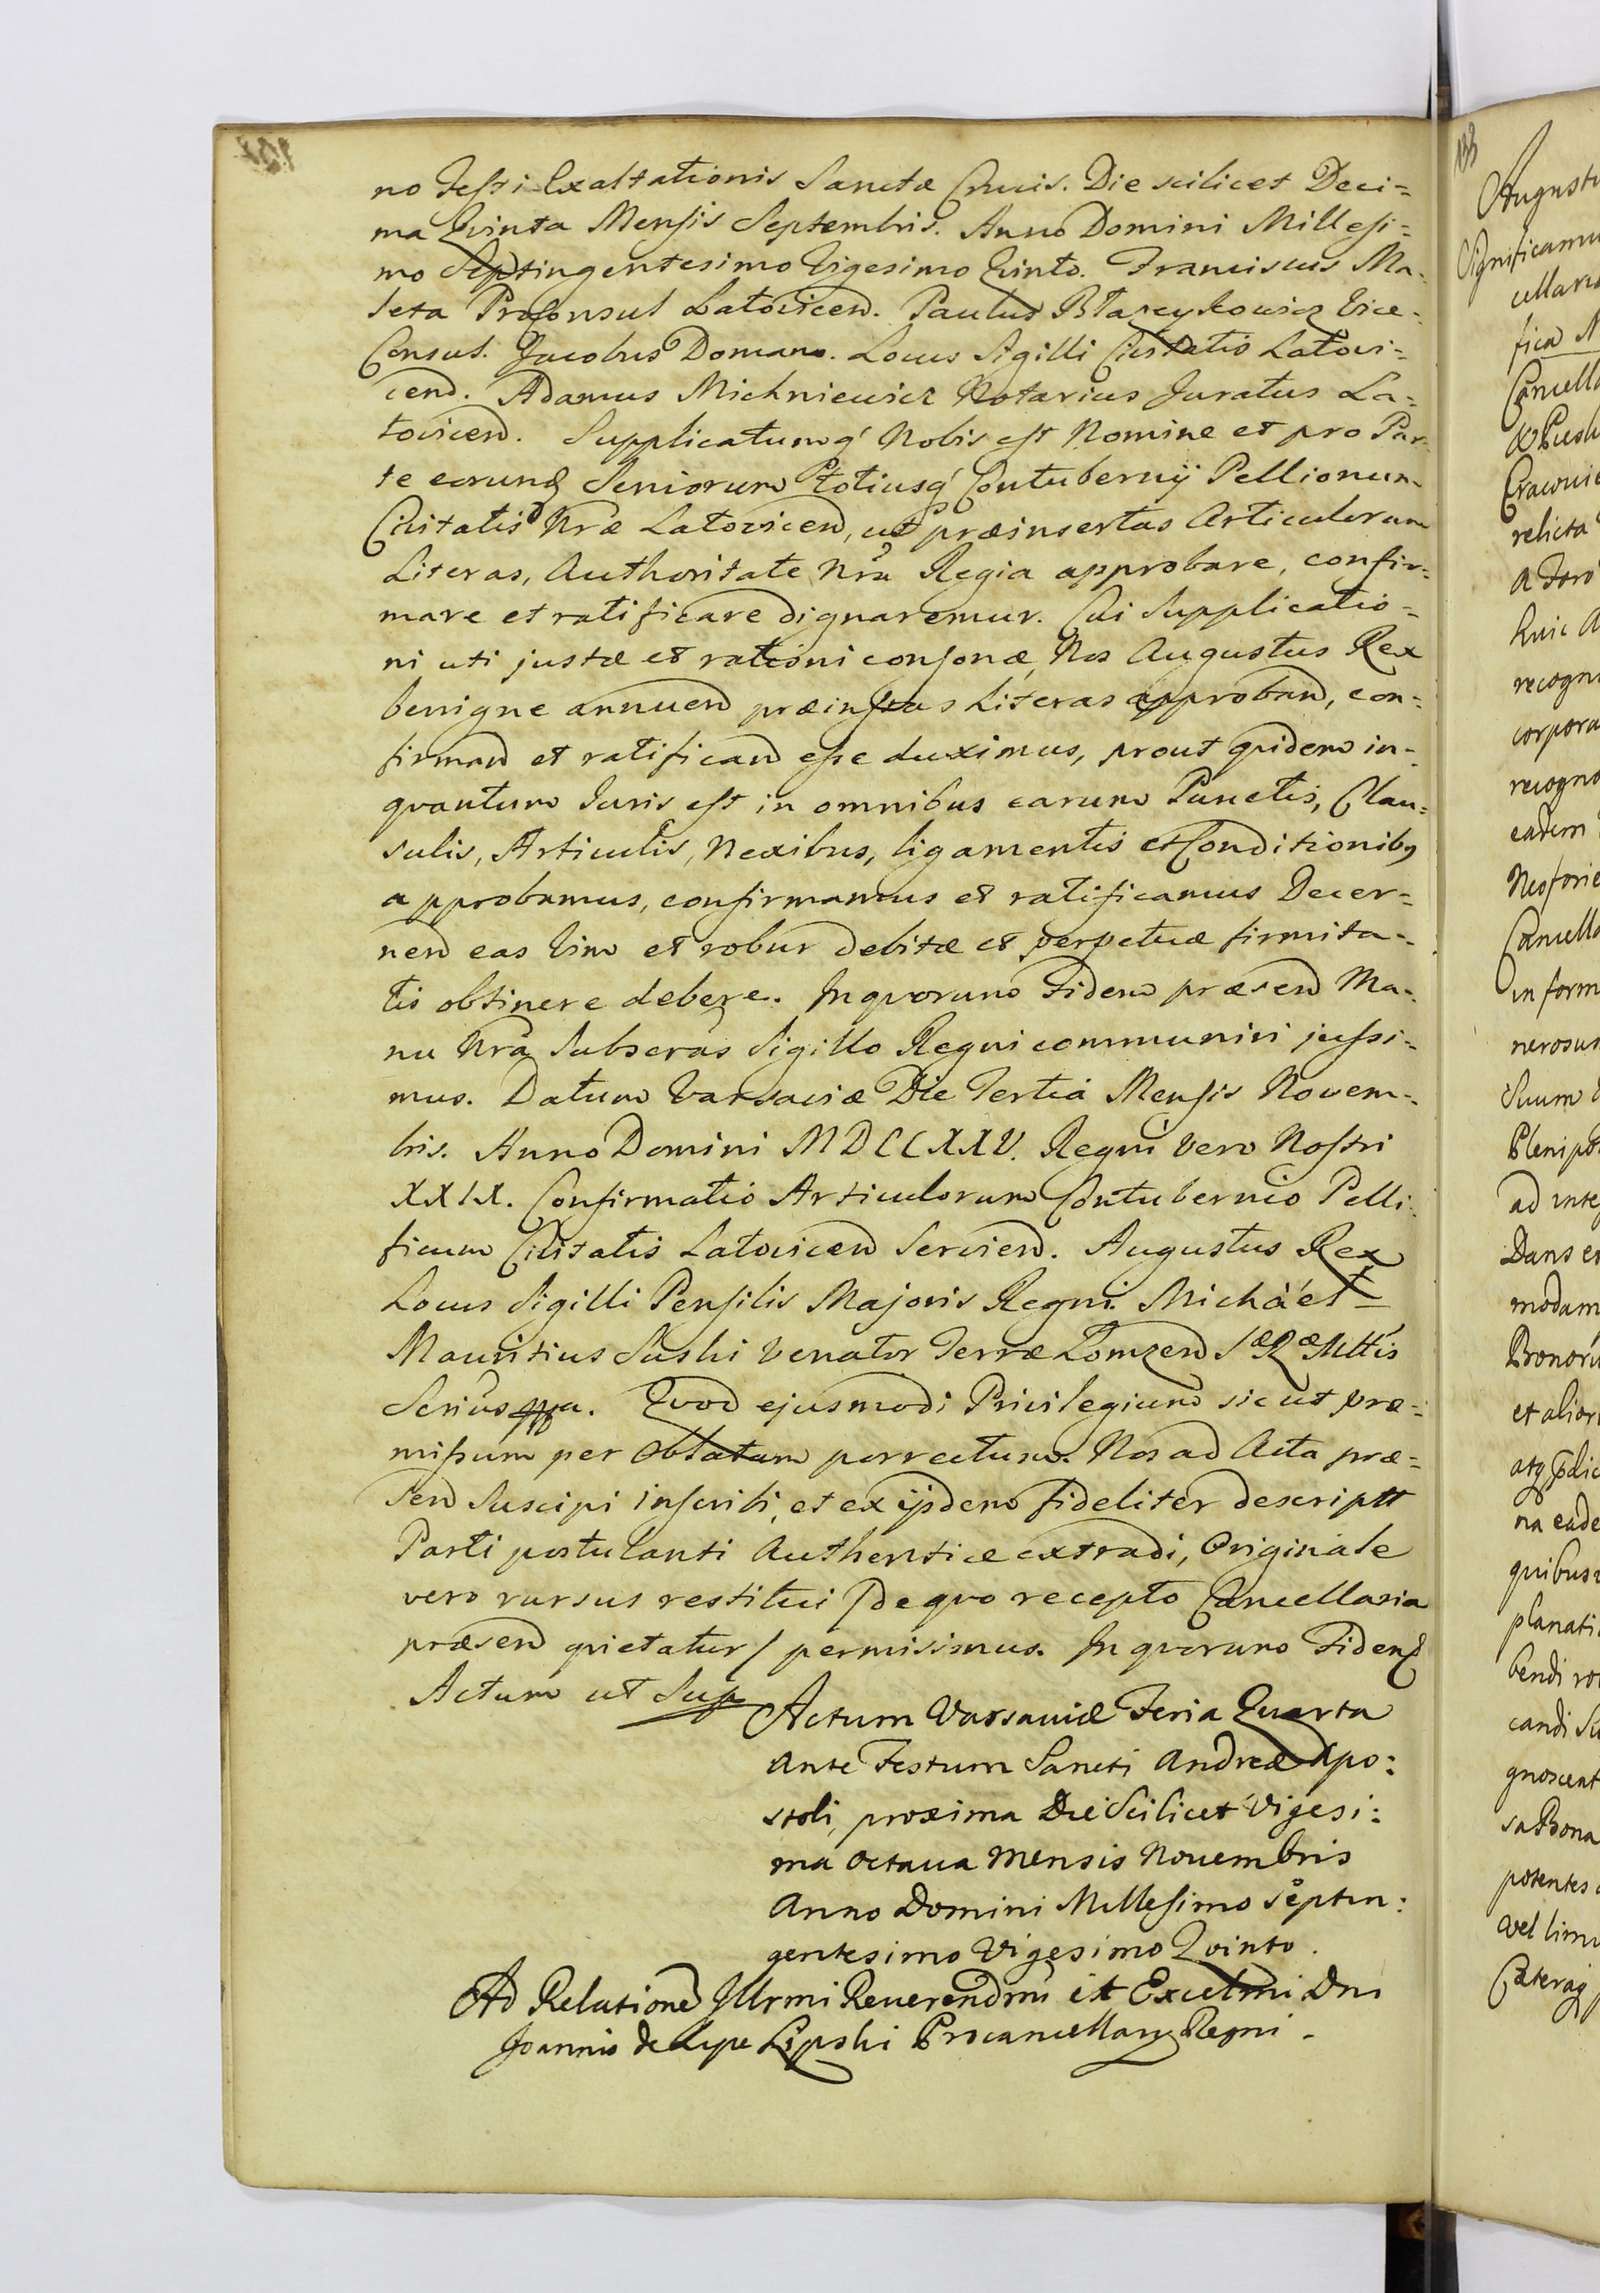 no Festi Exaltationis Sanctæ Crucis. Die scilicet Deci=
ma Qvinta Mensis Septembris. Anno Domini Millesi=
mo Septingentesimo Vigesimo Qvinto. Franciscus Ma=
leta Proconsul Latovicen. Paulus Błaszykowicz Vice=
Consul. Jacobus Doman. Locus Sigilli Civitatis Latovi=
cen. Adamus Michniewicz Notarius Juratus La=
tovicen. Supplicatumq' Nobis est Nomine et pro Par=
te eorund Seniorum Totiusq' Contubernij Pellionum
Civitatis Nræ Latovicen, ut præinsertas Articulorum
Literas, Authoritate Nra Regia approbare, confir=
mare et ratificare dignaremur. Cui Supplicatio=
ni uti justæ et rationi consonæ, Nos Augustus Rex
benigne annuen præinstas Literas approban, con=
firman et ratifican esse duximus, prout qvidem in=
qvantum Juris est in omnibus earum Punctis, Clau=
sulis, Articulis, Nexibus, ligamentis et Conditionibq
approbamus, confirmamus et ratificamus Decer=
nen eas Vim et robur debitæ et perpetuæ firmita=
tis obtinere debere. In qvorum Fidem præsen Ma=
nu Nra Subscras Sigillo Regni communiri jussi=
mus. Datum Varsaviæ Die Tertia Mensis Novem=
bris. Anno Domini MDCCXXV. Regni vero Nostri
XXIX. Confirmatio Articulorum Contubernio Pelli
ficum Civitatis Latovicen Servien. Augustus Rex
Locus Sigilli Pensilis Majoris Regni. Michael
Mauritius Suski Venator Terræ Łomzen SæRæMttis
Scrius mpa. Qvod ejusmodi Privilegium sic ut præ=
missum per Oblatam porrectum. Nos ad Acta præ=
sen Suscipi inscribi, et ex ijsdem fideliter descriptt
Parti postulanti Authentice extradi, Originale
vero rursus restitui /de qvo recepto Cancellaria
præsen qvietatur/ permisimus. In qvorum Fidem
Actum ut Sup
Actum Varsaviæ Feria Quarta
ante Festum Sancti Andreæ Apo:
stoli, proxima Die Scilicet Vigesi:
ma octava Mensis Novembris
Anno Domini Millesimo Septin:
gentesimo Vigesimo Qvinto.
Ad Relatione Illrmi Reverendmi et Excelmi Dni
Joannis de Lipe Lipski Procancellarij Regni.
133
Augustu
Significamu
cellaria
fica N
Cancella
Cracovie
relicta
a Foro
huic A
recogn
corpora
recogno
eadem
Cancella
in form
nerosus
Suum
Plenipo
ad inte
Dans e
modam
Bonoru
et alior
na eade
quibus
planati
bendi
candi Su
gnoscent
sa Bona
potentes
vel lim